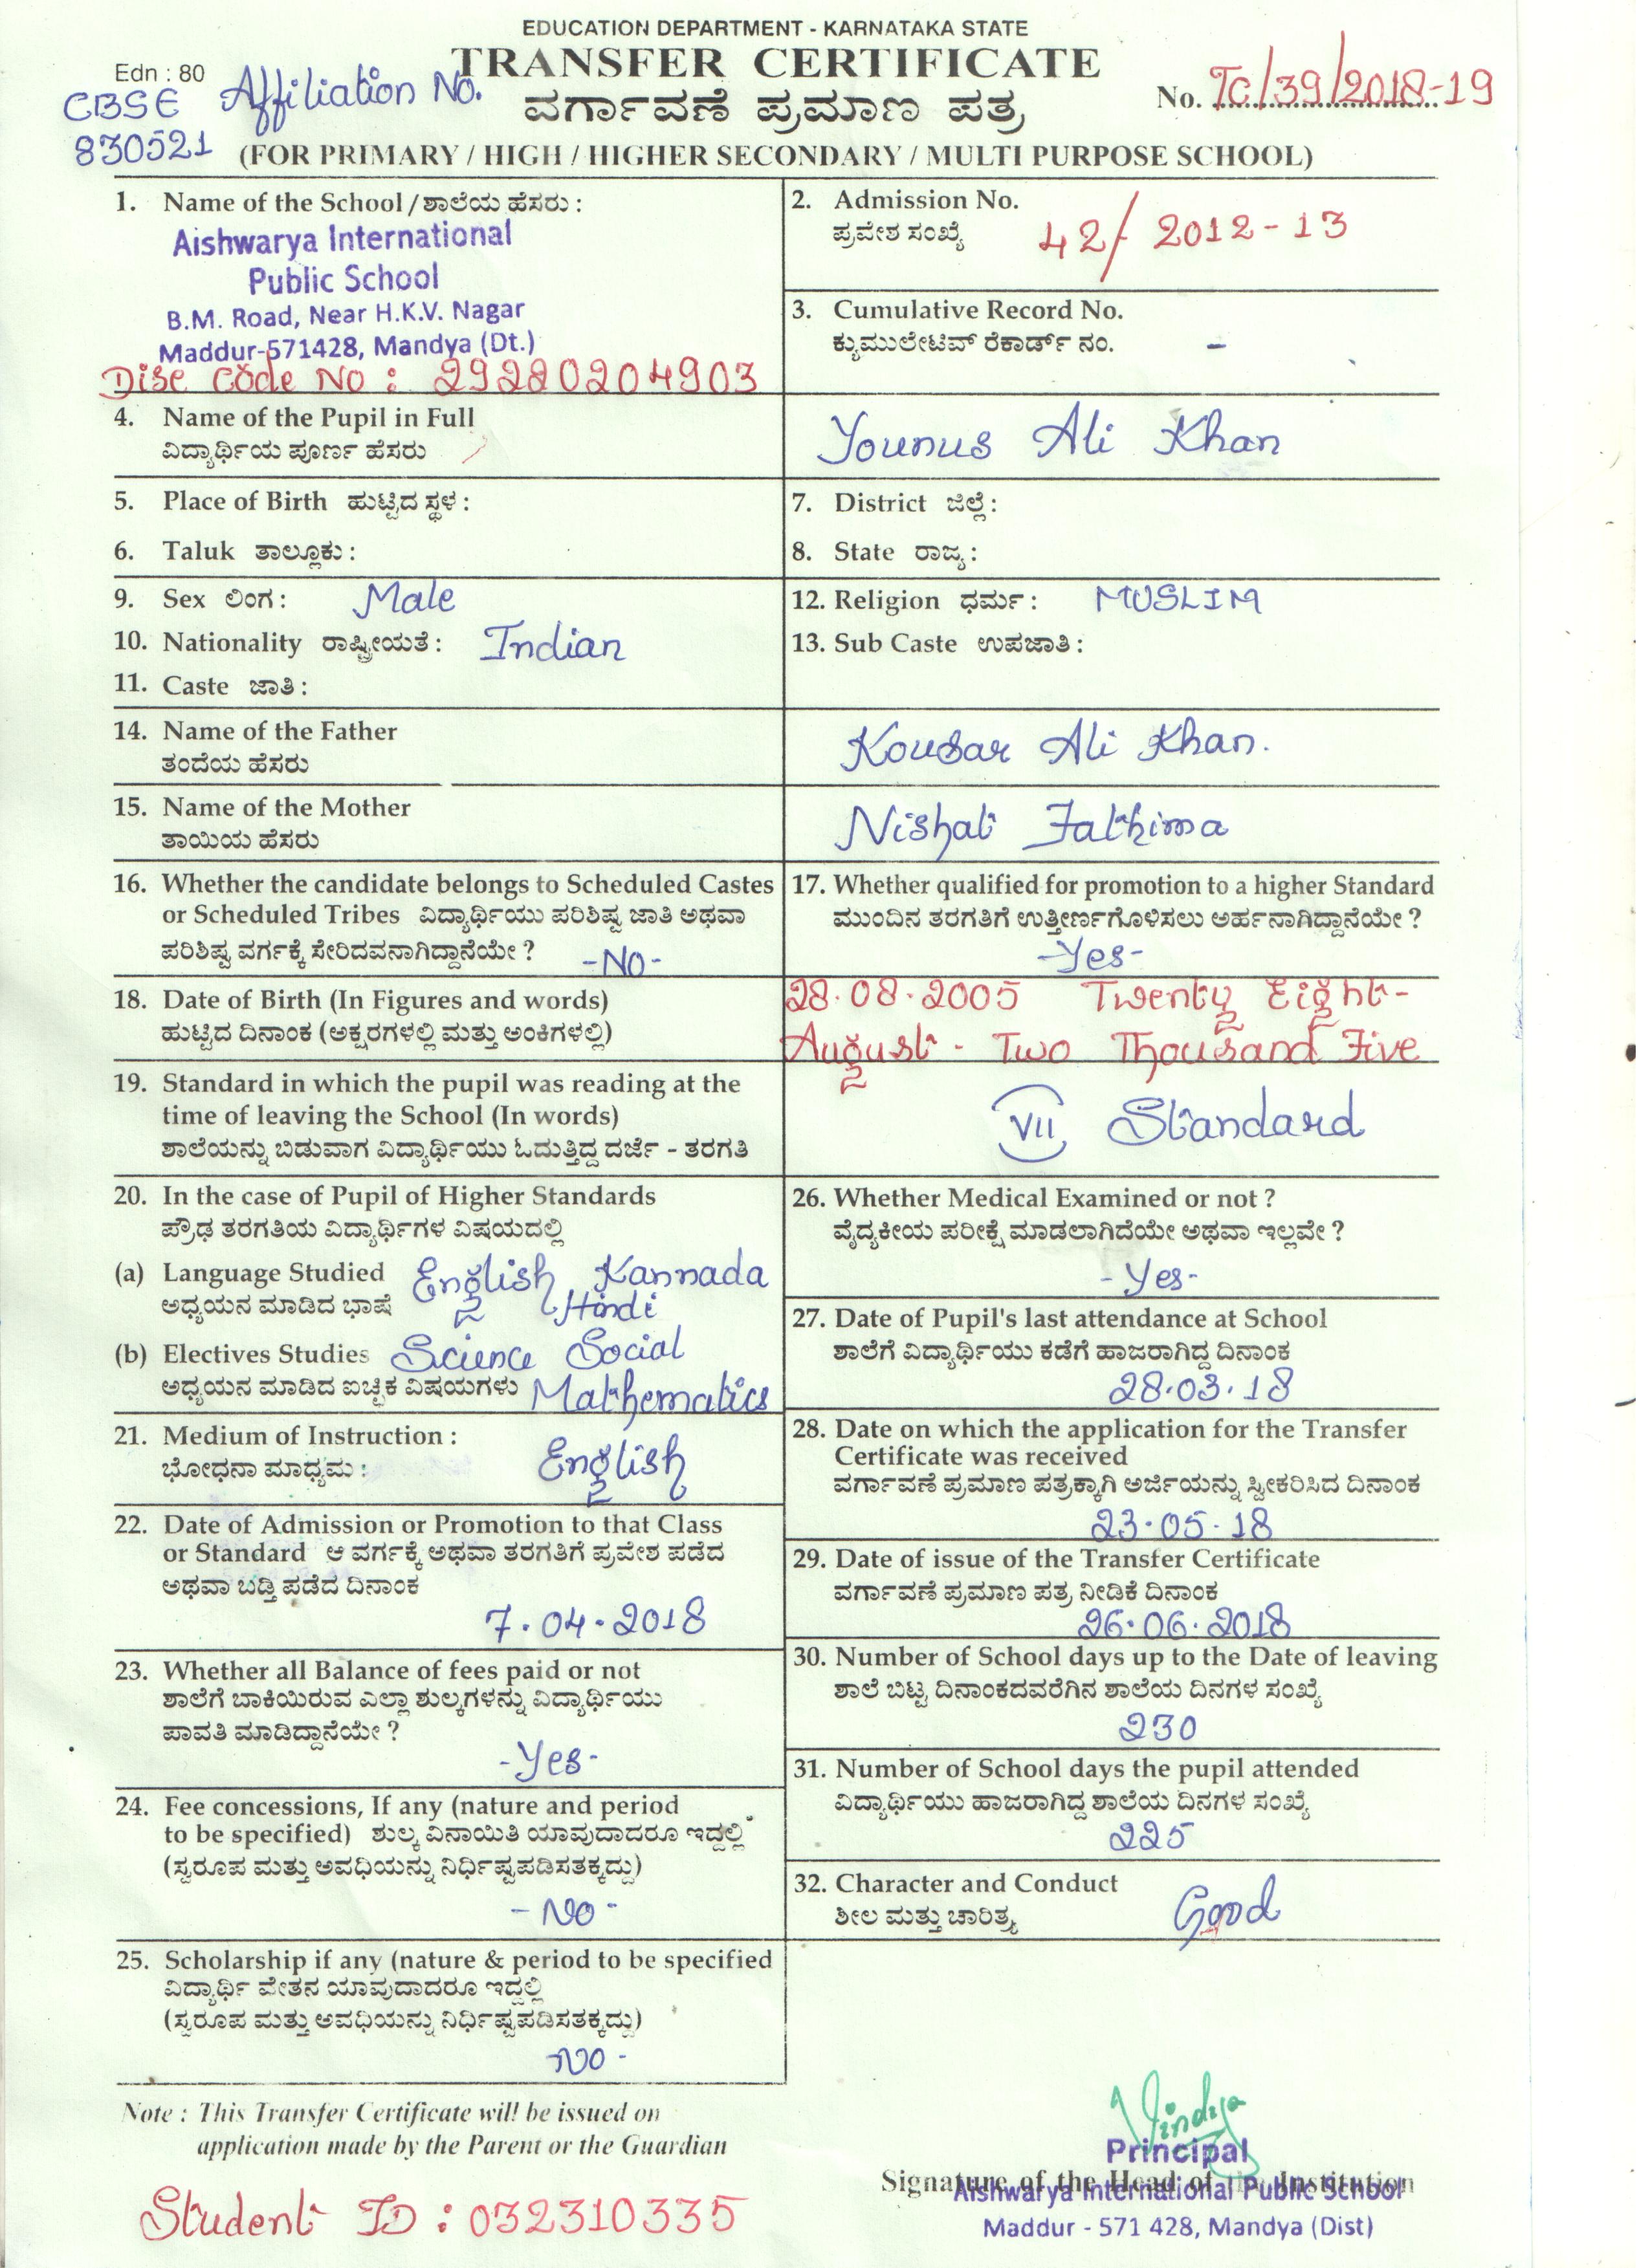 EDUCATION DEPARTMENT - KARNATAKA STATE
Edn : 80
TRANSFER CERTIFICATE
No. TC/39/2018-19
CBSE Affiliation No.
830521
ವರ್ಗಾವಣೆ ಪ್ರಮಾಣ ಪತ್ರ
(FOR PRIMARY / HIGH / HIGHER SECONDARY / MULTI PURPOSE SCHOOL)
1. Name of the School / ಶಾಲೆಯ ಹೆಸರು :
Aishwarya International
Public School
B.M. Road, Near H.K.V. Nagar
Maddur-571428, Mandya (Dt.)
Dise Code No : 29220204903
2. Admission No.
ಪ್ರವೇಶ ಸಂಖ್ಯೆ 42/ 2012-13
3. Cumulative Record No.
ಕ್ಯುಮುಲೇಟಿವ್ ರೆಕಾರ್ಡ್ ನಂ. -
4. Name of the Pupil in Full
ವಿದ್ಯಾರ್ಥಿಯ ಪೂರ್ಣ ಹೆಸರು
Younus Ali Khan
5. Place of Birth ಹುಟ್ಟಿದ ಸ್ಥಳ :
6. Taluk ತಾಲ್ಲೂಕು :
7. District ಜಿಲ್ಲೆ :
8. State ರಾಜ್ಯ :
9. Sex ಲಿಂಗ : Male
10. Nationality ರಾಷ್ಟ್ರೀಯತೆ : Indian
11. Caste ಜಾತಿ :
12. Religion ಧರ್ಮ : MUSLIM
13. Sub Caste ಉಪಜಾತಿ :
14. Name of the Father
ತಂದೆಯ ಹೆಸರು
Kousar Ali Khan.
15. Name of the Mother
ತಾಯಿಯ ಹೆಸರು
Nishat Fathima
16. Whether the candidate belongs to Scheduled Castes
or Scheduled Tribes ವಿದ್ಯಾರ್ಥಿಯು ಪರಿಶಿಷ್ಟ ಜಾತಿ ಅಥವಾ
ಪರಿಶಿಷ್ಟ ವರ್ಗಕ್ಕೆ ಸೇರಿದವನಾಗಿದ್ದಾನೆಯೇ ? -No-
17. Whether qualified for promotion to a higher Standard
ಮುಂದಿನ ತರಗತಿಗೆ ಉತ್ತೀರ್ಣಗೊಳಿಸಲು ಅರ್ಹನಾಗಿದ್ದಾನೆಯೇ ?
-Yes-
18. Date of Birth (In Figures and words)
ಹುಟ್ಟಿದ ದಿನಾಂಕ (ಅಕ್ಷರಗಳಲ್ಲಿ ಮತ್ತು ಅಂಕಿಗಳಲ್ಲಿ)
28.08.2005 Twenty Eight-
August - Two Thousand Five
19. Standard in which the pupil was reading at the
time of leaving the School (In words)
ಶಾಲೆಯನ್ನು ಬಿಡುವಾಗ ವಿದ್ಯಾರ್ಥಿಯು ಓದುತ್ತಿದ್ದ ದರ್ಜೆ - ತರಗತಿ
VII Standard
20. In the case of Pupil of Higher Standards
ಪ್ರೌಢ ತರಗತಿಯ ವಿದ್ಯಾರ್ಥಿಗಳ ವಿಷಯದಲ್ಲಿ
(a) Language Studied English Kannada
ಅಧ್ಯಯನ ಮಾಡಿದ ಭಾಷೆ Hindi
(b) Electives Studies Science Social
ಅಧ್ಯಯನ ಮಾಡಿದ ಐಚ್ಛಿಕ ವಿಷಯಗಳು Mathematics
21. Medium of Instruction :
ಭೋಧನಾ ಮಾಧ್ಯಮ : English
22. Date of Admission or Promotion to that Class
or Standard ಆ ವರ್ಗಕ್ಕೆ ಅಥವಾ ತರಗತಿಗೆ ಪ್ರವೇಶ ಪಡೆದ
ಅಥವಾ ಬಡ್ತಿ ಪಡೆದ ದಿನಾಂಕ
7.04.2018
23. Whether all Balance of fees paid or not
ಶಾಲೆಗೆ ಬಾಕಿಯಿರುವ ಎಲ್ಲಾ ಶುಲ್ಕಗಳನ್ನು ವಿದ್ಯಾರ್ಥಿಯು
ಪಾವತಿ ಮಾಡಿದ್ದಾನೆಯೇ ?
-Yes-
24. Fee concessions, If any (nature and period
to be specified) ಶುಲ್ಕ ವಿನಾಯಿತಿ ಯಾವುದಾದರೂ ಇದ್ದಲ್ಲಿ
(ಸ್ವರೂಪ ಮತ್ತು ಅವಧಿಯನ್ನು ನಿರ್ಧಿಷ್ಟಪಡಿಸತಕ್ಕದ್ದು)
- No -
25. Scholarship if any (nature & period to be specified
ವಿದ್ಯಾರ್ಥಿ ವೇತನ ಯಾವುದಾದರೂ ಇದ್ದಲ್ಲಿ
(ಸ್ವರೂಪ ಮತ್ತು ಅವಧಿಯನ್ನು ನಿರ್ಧಿಷ್ಟಪಡಿಸತಕ್ಕದ್ದು)
No -
26. Whether Medical Examined or not ?
ವೈದ್ಯಕೀಯ ಪರೀಕ್ಷೆ ಮಾಡಲಾಗಿದೆಯೇ ಅಥವಾ ಇಲ್ಲವೇ ?
-Yes-
27. Date of Pupil's last attendance at School
ಶಾಲೆಗೆ ವಿದ್ಯಾರ್ಥಿಯು ಕಡೆಗೆ ಹಾಜರಾಗಿದ್ದ ದಿನಾಂಕ
28.03.18
28. Date on which the application for the Transfer
Certificate was received
ವರ್ಗಾವಣೆ ಪ್ರಮಾಣ ಪತ್ರಕ್ಕಾಗಿ ಅರ್ಜಿಯನ್ನು ಸ್ವೀಕರಿಸಿದ ದಿನಾಂಕ
23.05.18
29. Date of issue of the Transfer Certificate
ವರ್ಗಾವಣೆ ಪ್ರಮಾಣ ಪತ್ರ ನೀಡಿಕೆ ದಿನಾಂಕ
26.06.2018
30. Number of School days up to the Date of leaving
ಶಾಲೆ ಬಿಟ್ಟ ದಿನಾಂಕದವರೆಗಿನ ಶಾಲೆಯ ದಿನಗಳ ಸಂಖ್ಯೆ
230
31. Number of School days the pupil attended
ವಿದ್ಯಾರ್ಥಿಯು ಹಾಜರಾಗಿದ್ದ ಶಾಲೆಯ ದಿನಗಳ ಸಂಖ್ಯೆ
225
32. Character and Conduct
ಶೀಲ ಮತ್ತು ಚಾರಿತ್ರ್ಯ Good
Note : This Transfer Certificate will be issued on
application made by the Parent or the Guardian
Student ID : 032310335
Vindya
Principal
Signature of the Head of the Institution
Aishwarya International Public School
Maddur - 571 428, Mandya (Dist)